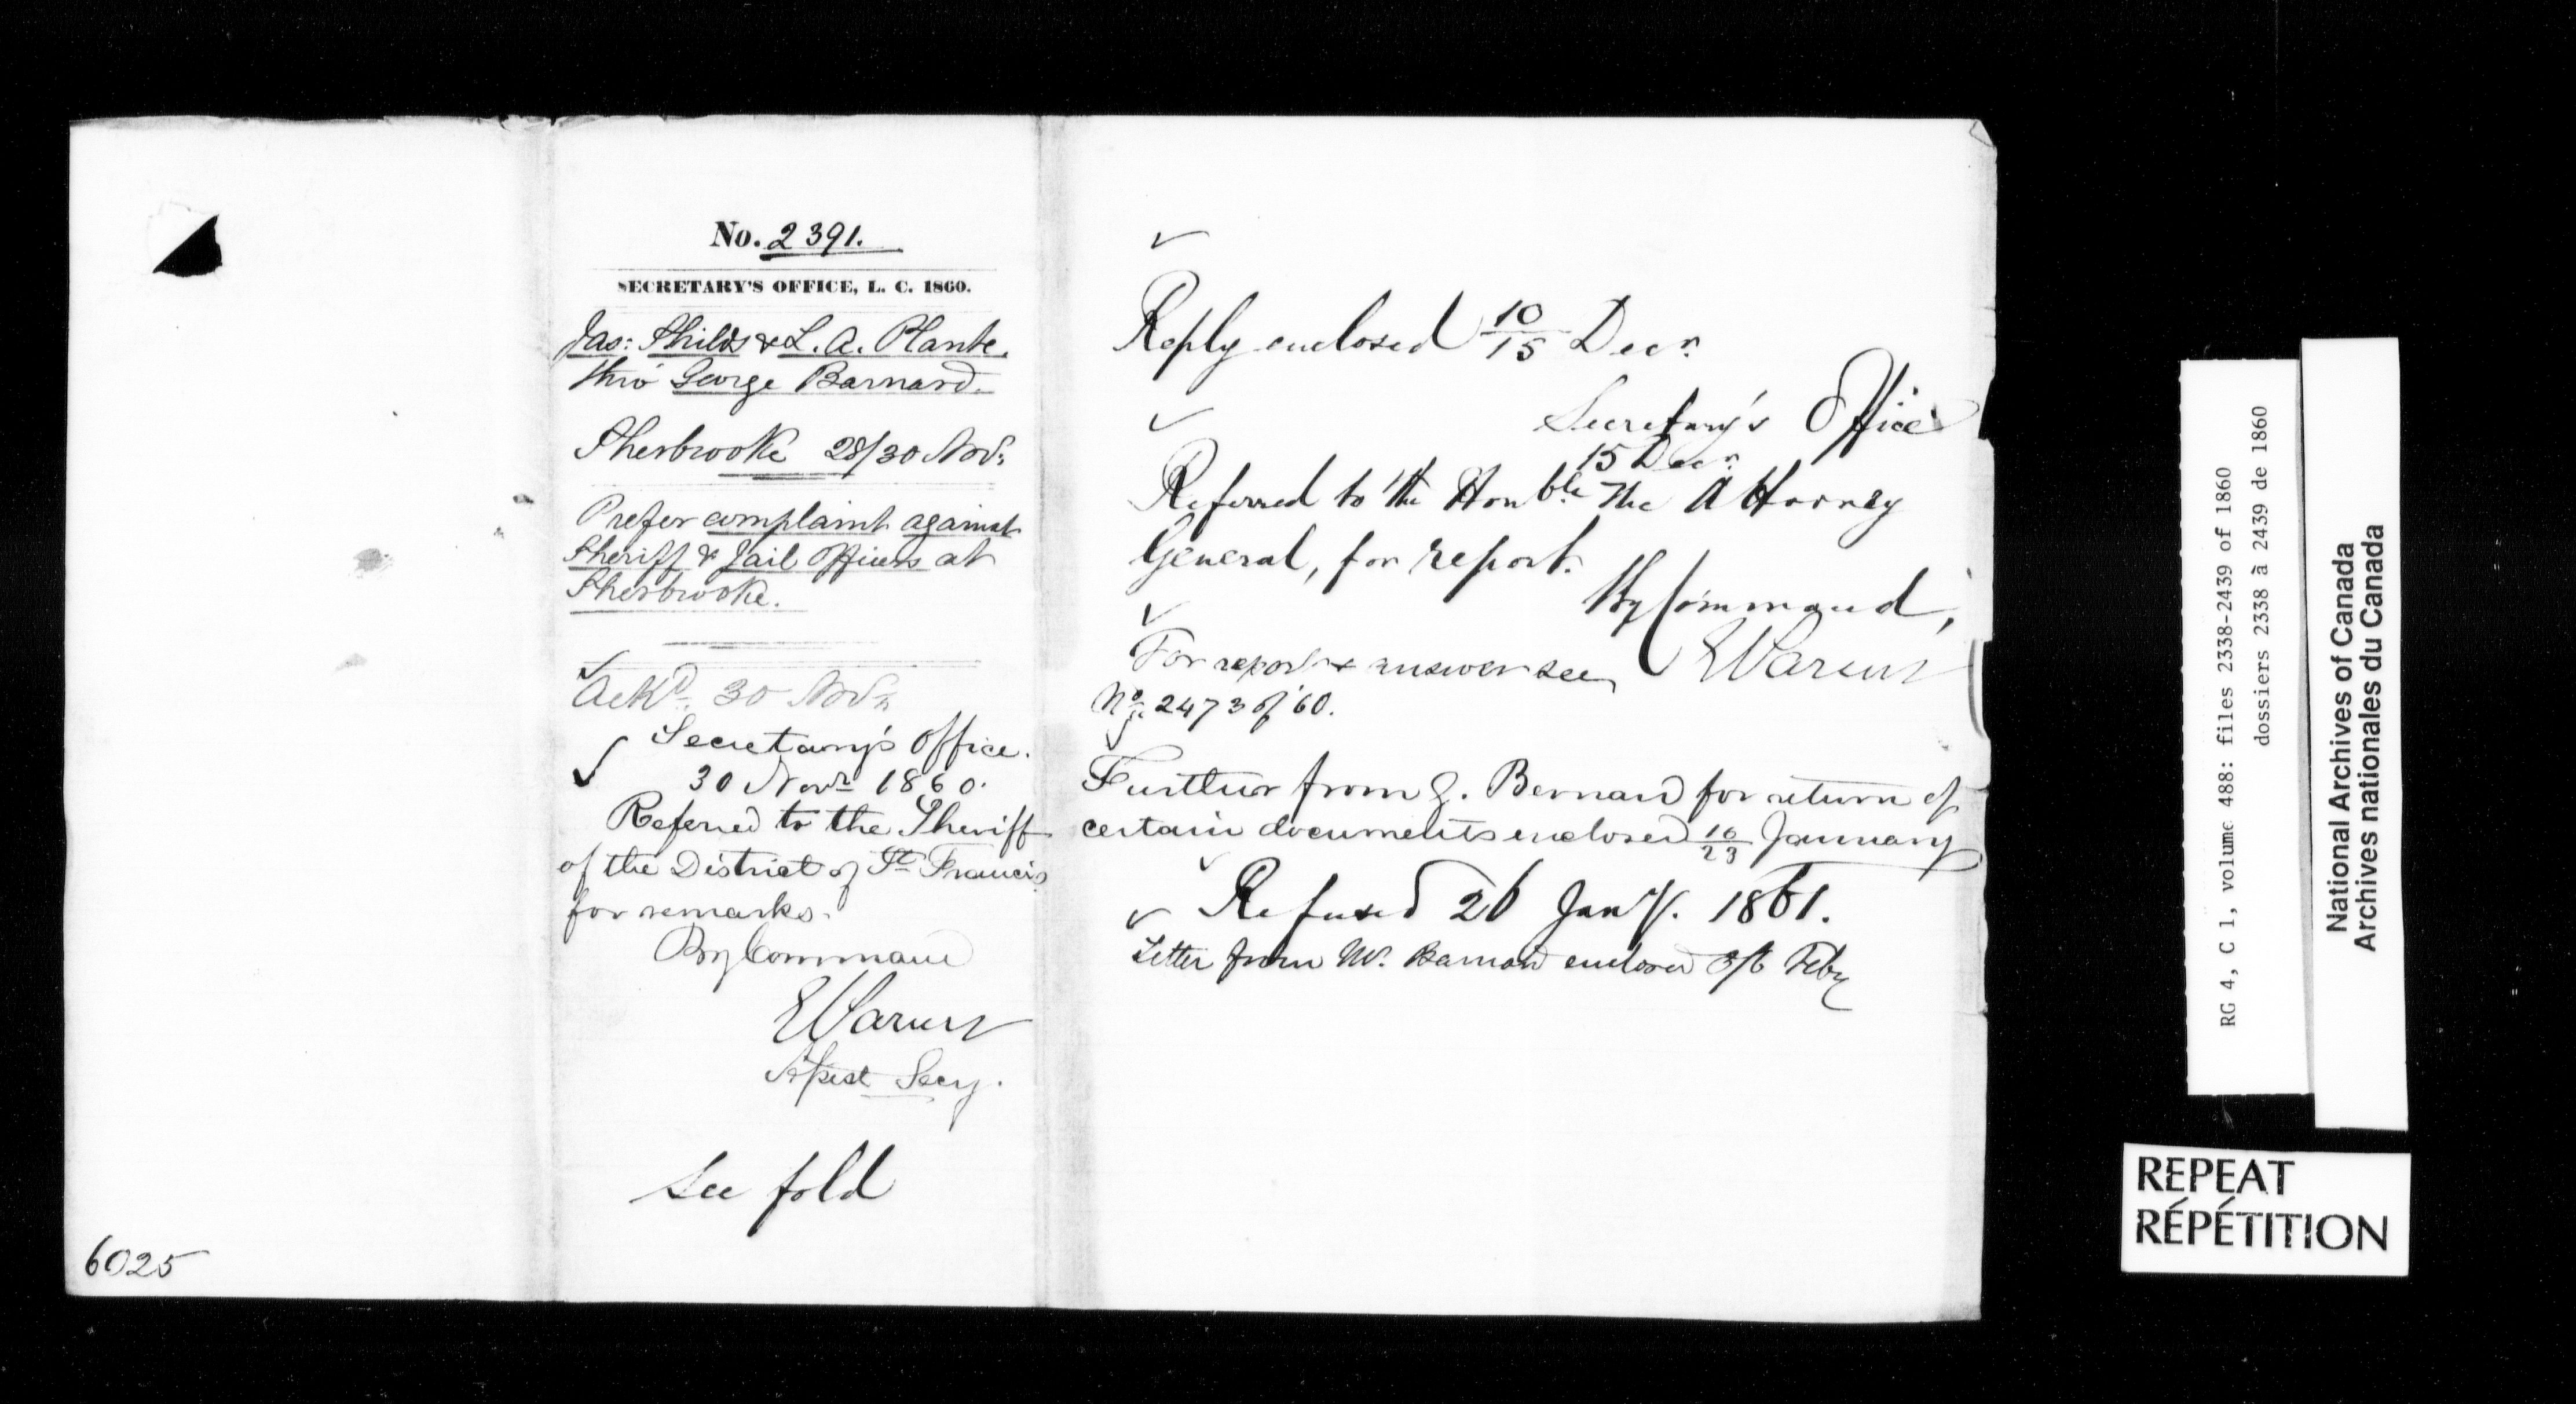 No. 2391.
SECRETARY'S OFFICE, L. C. 1860.
Jas: Shilds & L. A. Plante.
thro' George Barnard.
Sherbrooke 28/30 Novr.
Prefer complaint against
Sheriff & Jail Officers at
Sherbrooke.
Ackd. 30 Novr.
Secretary's Office.
30 Novr 1860.
Referred to the Sheriff
of the District of St Francis
for remarks.
By Command
Asist Secy.
See fold
6025
Reply enclosed 10/15 Decr.
Secretary's Office
15 Decr.
Referred to the Honble The Attorney
General, for report.
By Command,
For report & answer see
No. 2473 of '60.
Further from G. Bernard for return of
certain documents enclosed /23 January
Refused 26 Jany. 1861.
Letter from Mr. Barnard enclosed /6 Feby
RG 4, C 1, volume 488: files 2338-2439 of 1860
dossiers 2338 à 2439 de 1860
National Archives of Canada
Archives nationales du Canada
REPEAT
RÉPÉTITION